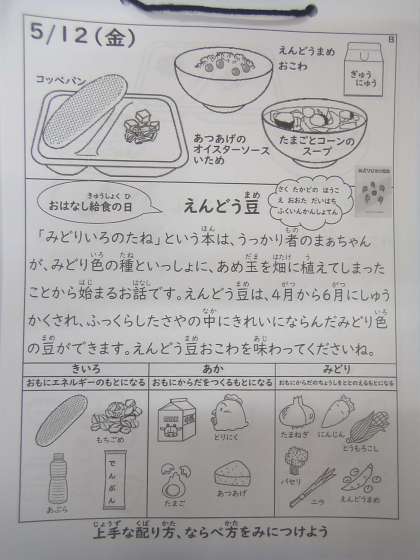 5/12(金)
B
えんどうまめ
おこわ
ぎゅう
にゅう
コッペパン
あつあげの
オイスターソース
いため
たまごとコーンの
スープ
おはなし給食の日
えんどう豆
さく たかどの ほうこ
え おおた だいはち
ふくいんかんしょてん
「みどりいろのたね」という本は、うっかり者のまあちゃん
が、みどり色の種といっしょに、あめ玉を畑に植えてしまった
ことから始まるお話です。えんどう豆は、4月から6月にしゅう
かくされ、ふっくらしたさやの中にきれいにならんだみどり色
の豆ができます。えんどう豆おこわを味わってくださいね。
きいろ
おもにエネルギーのもとになる
もちごめ
あぶら
でんぷん
あか
おもにからだをつくるもとになる
とりにく
たまご
あつあげ
みどり
おもにからだのちょうしをととのえるもとになる
たまねぎ
にんじん
とうもろこし
パセリ
ニラ
えんどうまめ
上手な配り方、ならべ方をみにつけよう